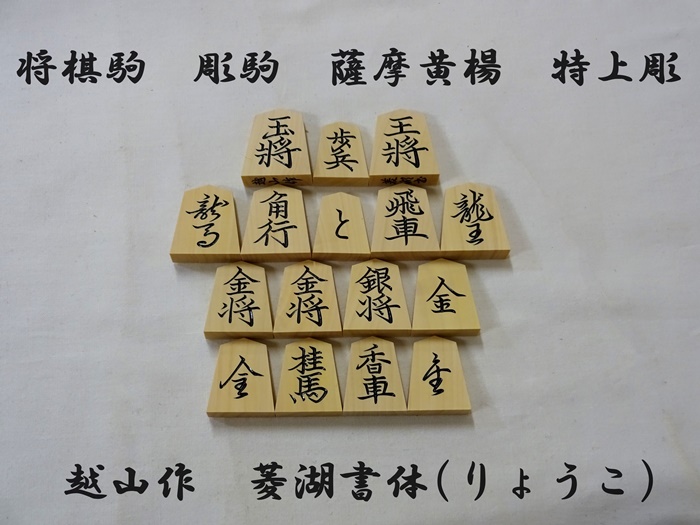 将棋駒 彫駒 薩摩黄楊 特上彫
玉將 歩兵 王將
龍馬 角行 と 飛車 龍王
金将 金将 銀将 金
全 桂馬 香車 金
越山作 菱湖書体(りょうこ)